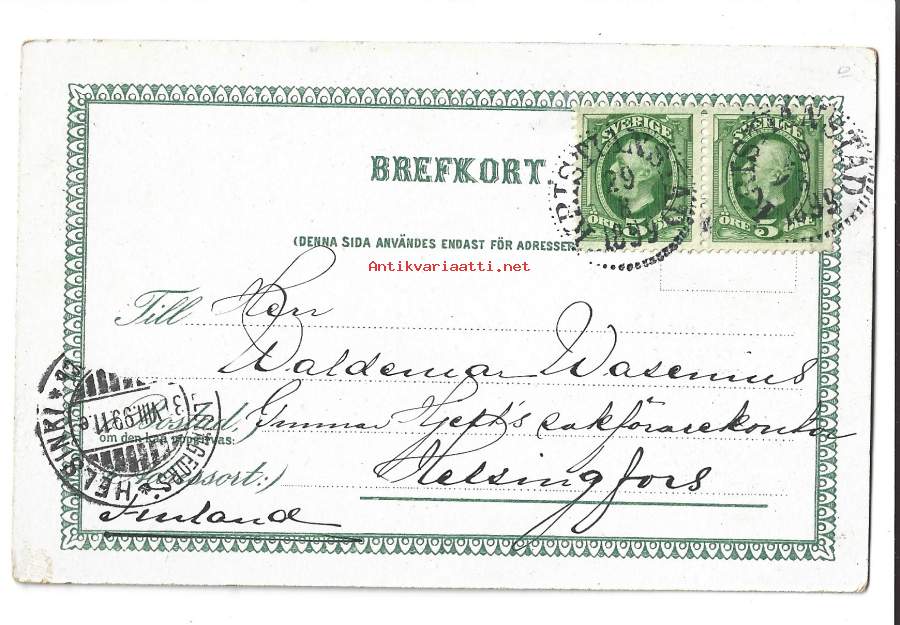 SVERIGE SVERIGE
BREFKORT
ÖRE 5 ÖRE ÖRE 5 ÖRE
KRISTIANSTAD
1899
KRISTIANSTAD
1899
(DENNA SIDA ANVÄNDES ENDAST FÖR ADRESSEN
Antikvariaatti.net
Till Herr
Waldemar Wasenius
Bostad, Gunnar Hjelt's sakförarekontor
om den kan uppgifvas:
Helsingfors
HELSINKI
HELSINGFORS
Finland